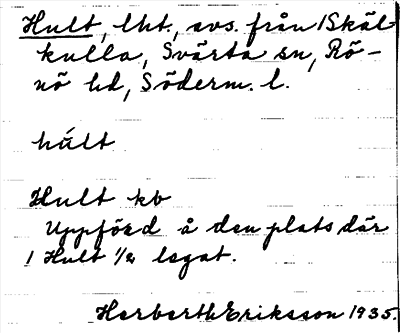 Hult, lht., avs. från 1 Skäl-
kulla, Svärta sn, Rö-
nö hd, Söderm. l.
húlt
Hult kb
Uppförd å den plats där
1 Hult 1/4 legat.
Herbert Eriksson 1935.